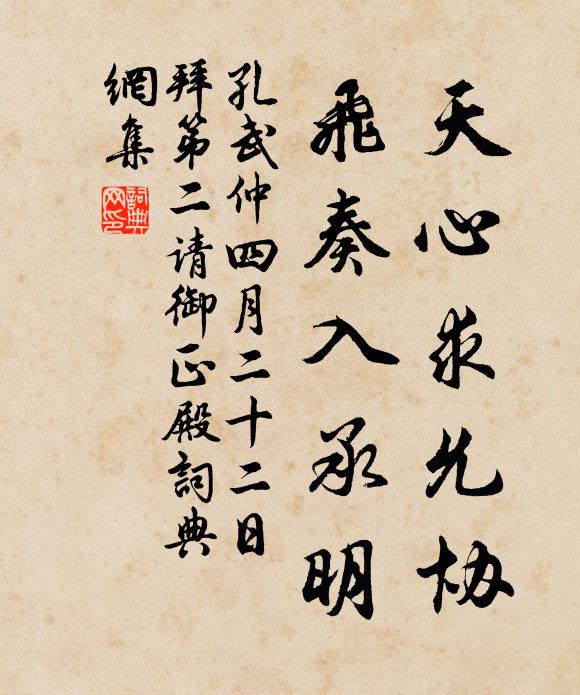 天心求允协
飛奏入承明
孔武仲四月二十二日
拜第二请御正殿詞典
網集
詞典網印